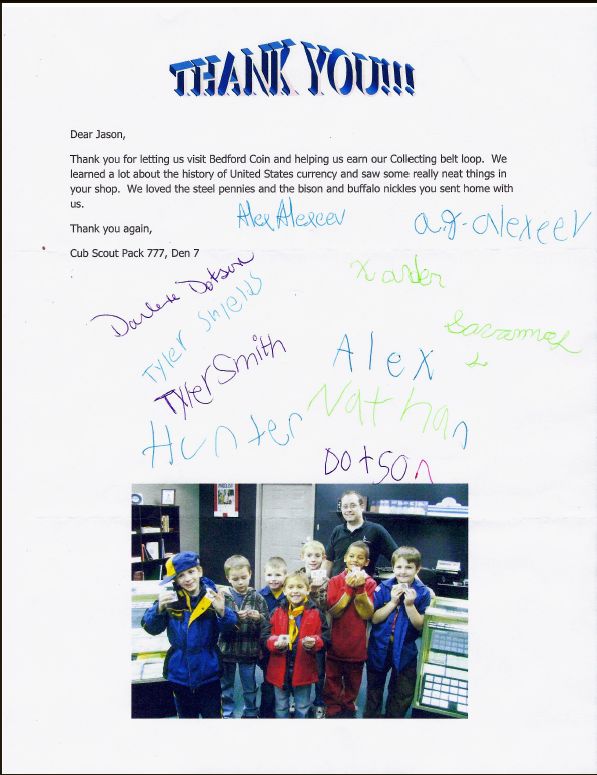 THANK YOU!!!
Dear Jason,
Thank you for letting us visit Bedford Coin and helping us earn our Collecting belt loop. We
learned a lot about the history of United States currency and saw some really neat things in
your shop. We loved the steel pennies and the bison and buffalo nickles you sent home with
us.
Alex Alexeev
a.j. alexeev
Thank you again,
Cub Scout Pack 777, Den 7
Darlene Dotson
Xander
Tyler Shields
Savannah
Tyler Smith
Alex
Nathan
Hunter
Dotson